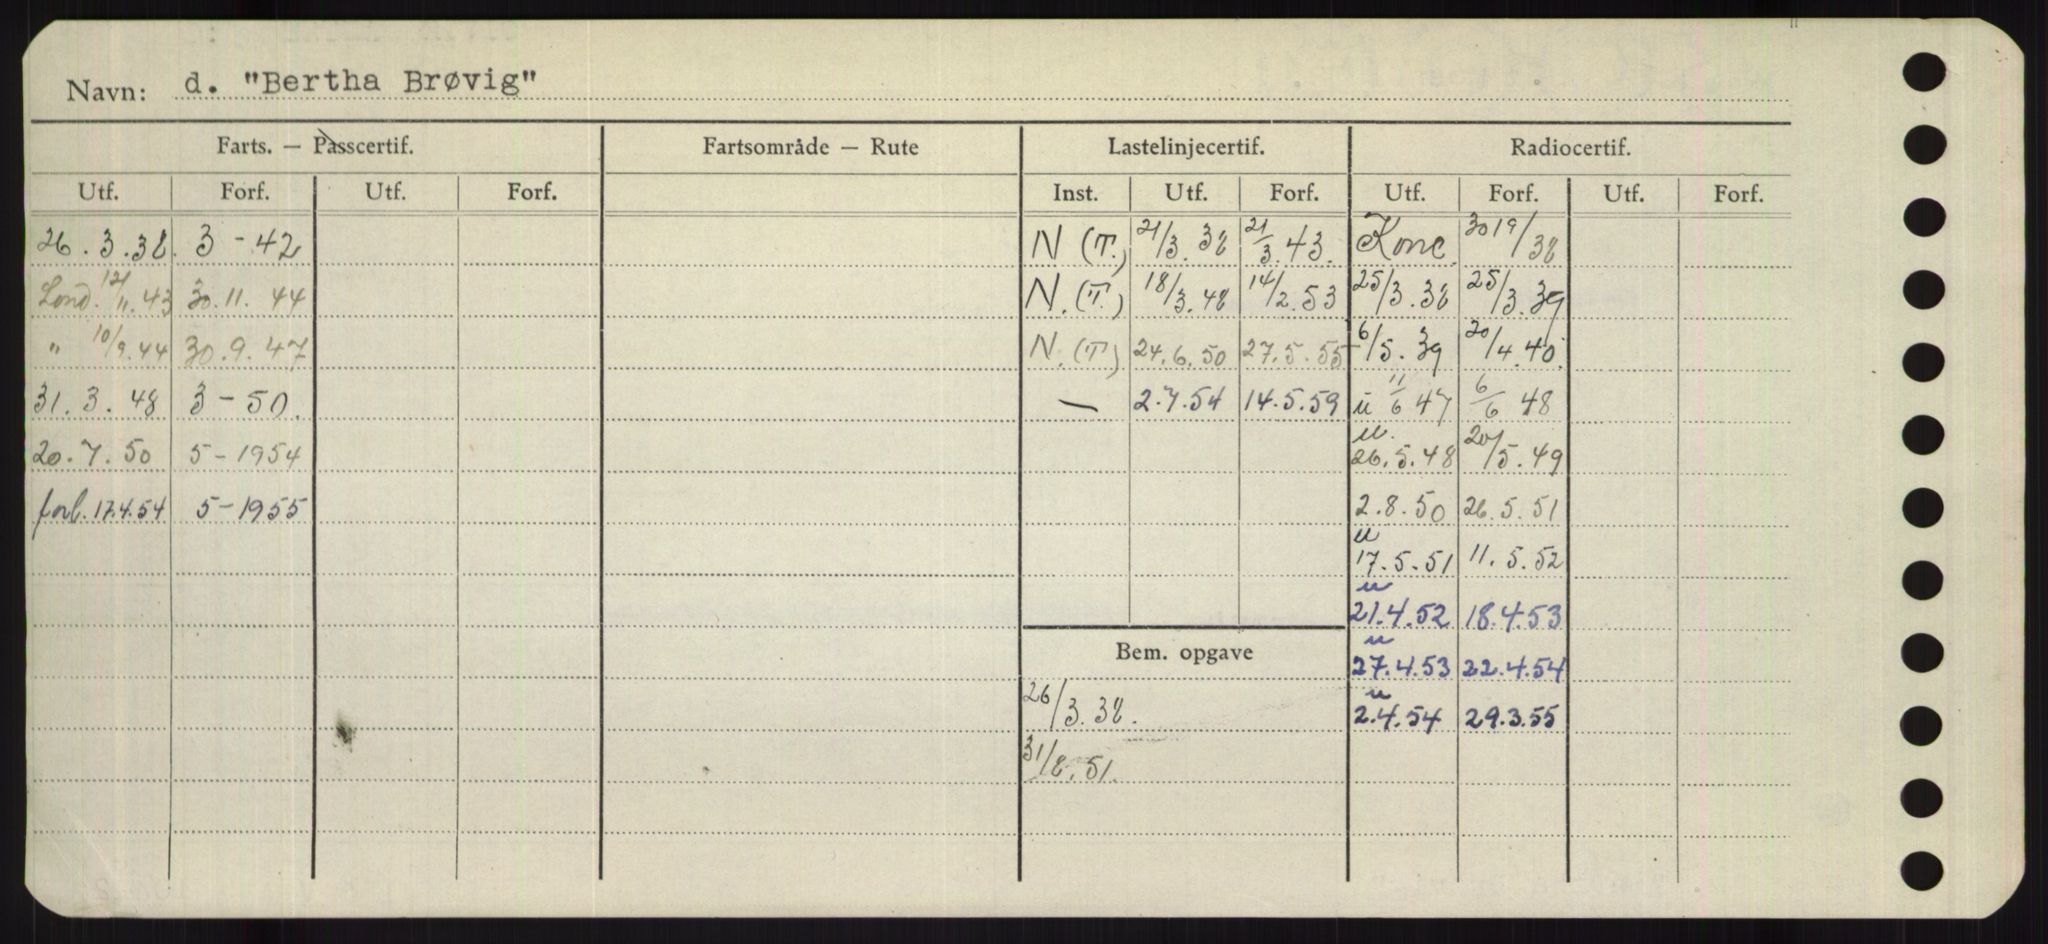 Navn: d. "Bertha Brøvig"
Farts. — Passcertif. Fartsområde — Rute Lastelinjecertif. Radiocertif.
Utf. Forf. Utf. Forf. Inst. Utf. Forf. Utf. Forf. Utf. Forf.
26.3.38. 3-42 N (T.) 21/3.38 21/3.43. Konc. 30 19/38
Lond. 12/11.43 30.11.44 N.(T.) 18/3.48 14/2.53 25/3.38 25/3.39
" 10/9.44 30.9.47 N.(T) 24.6.50 27.5.55 6/5.39 20/4.40.
31.3.48 3-50. — 2.7.54 14.5.59 u 11/6 47 6/6 48
u.
20.7.50 5-1954 26.5.48 20/5.49
forl. 17.4.54 5-1955 2.8.50 26.5.51
u
17.5.51 11.5.52
u
21.4.52 18.4.53
u
Bem. opgave 27.4.53 22.4.54
u
26/3.38. 2.4.54 29.3.55
31/8.51.